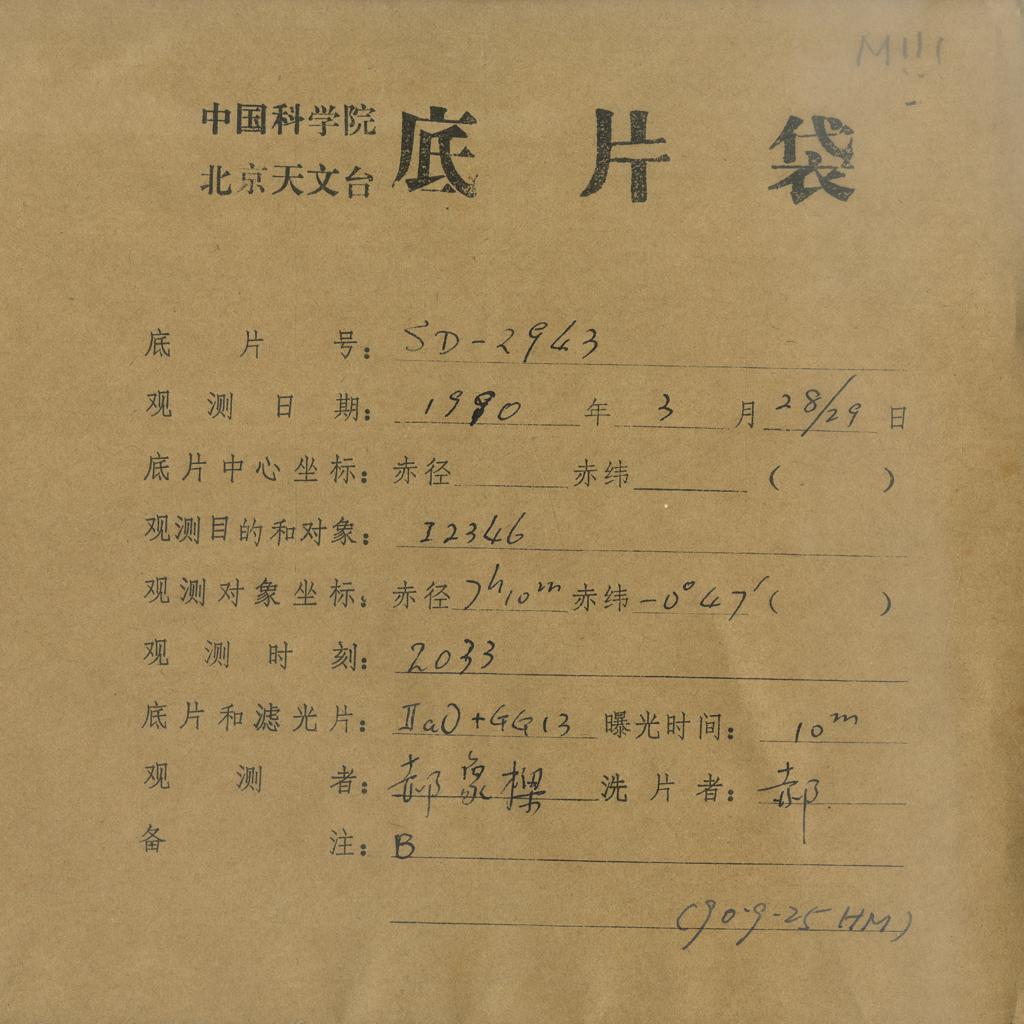 中国科学院
北京天文台
底片袋
底片号: SD-2943
观测日期: 1990 年 3 月 28/29 日
底片中心坐标: 赤径 赤纬 ( )
观测目的和对象: I2346
观测对象坐标: 赤径 7h10m 赤纬 -0°47′ ( )
观测时刻: 2033
底片和滤光片: IIaO+GG13 曝光时间: 10m
观测者: 郝象樑 洗片者: 郝
备注: B
(90-9-25 HM)